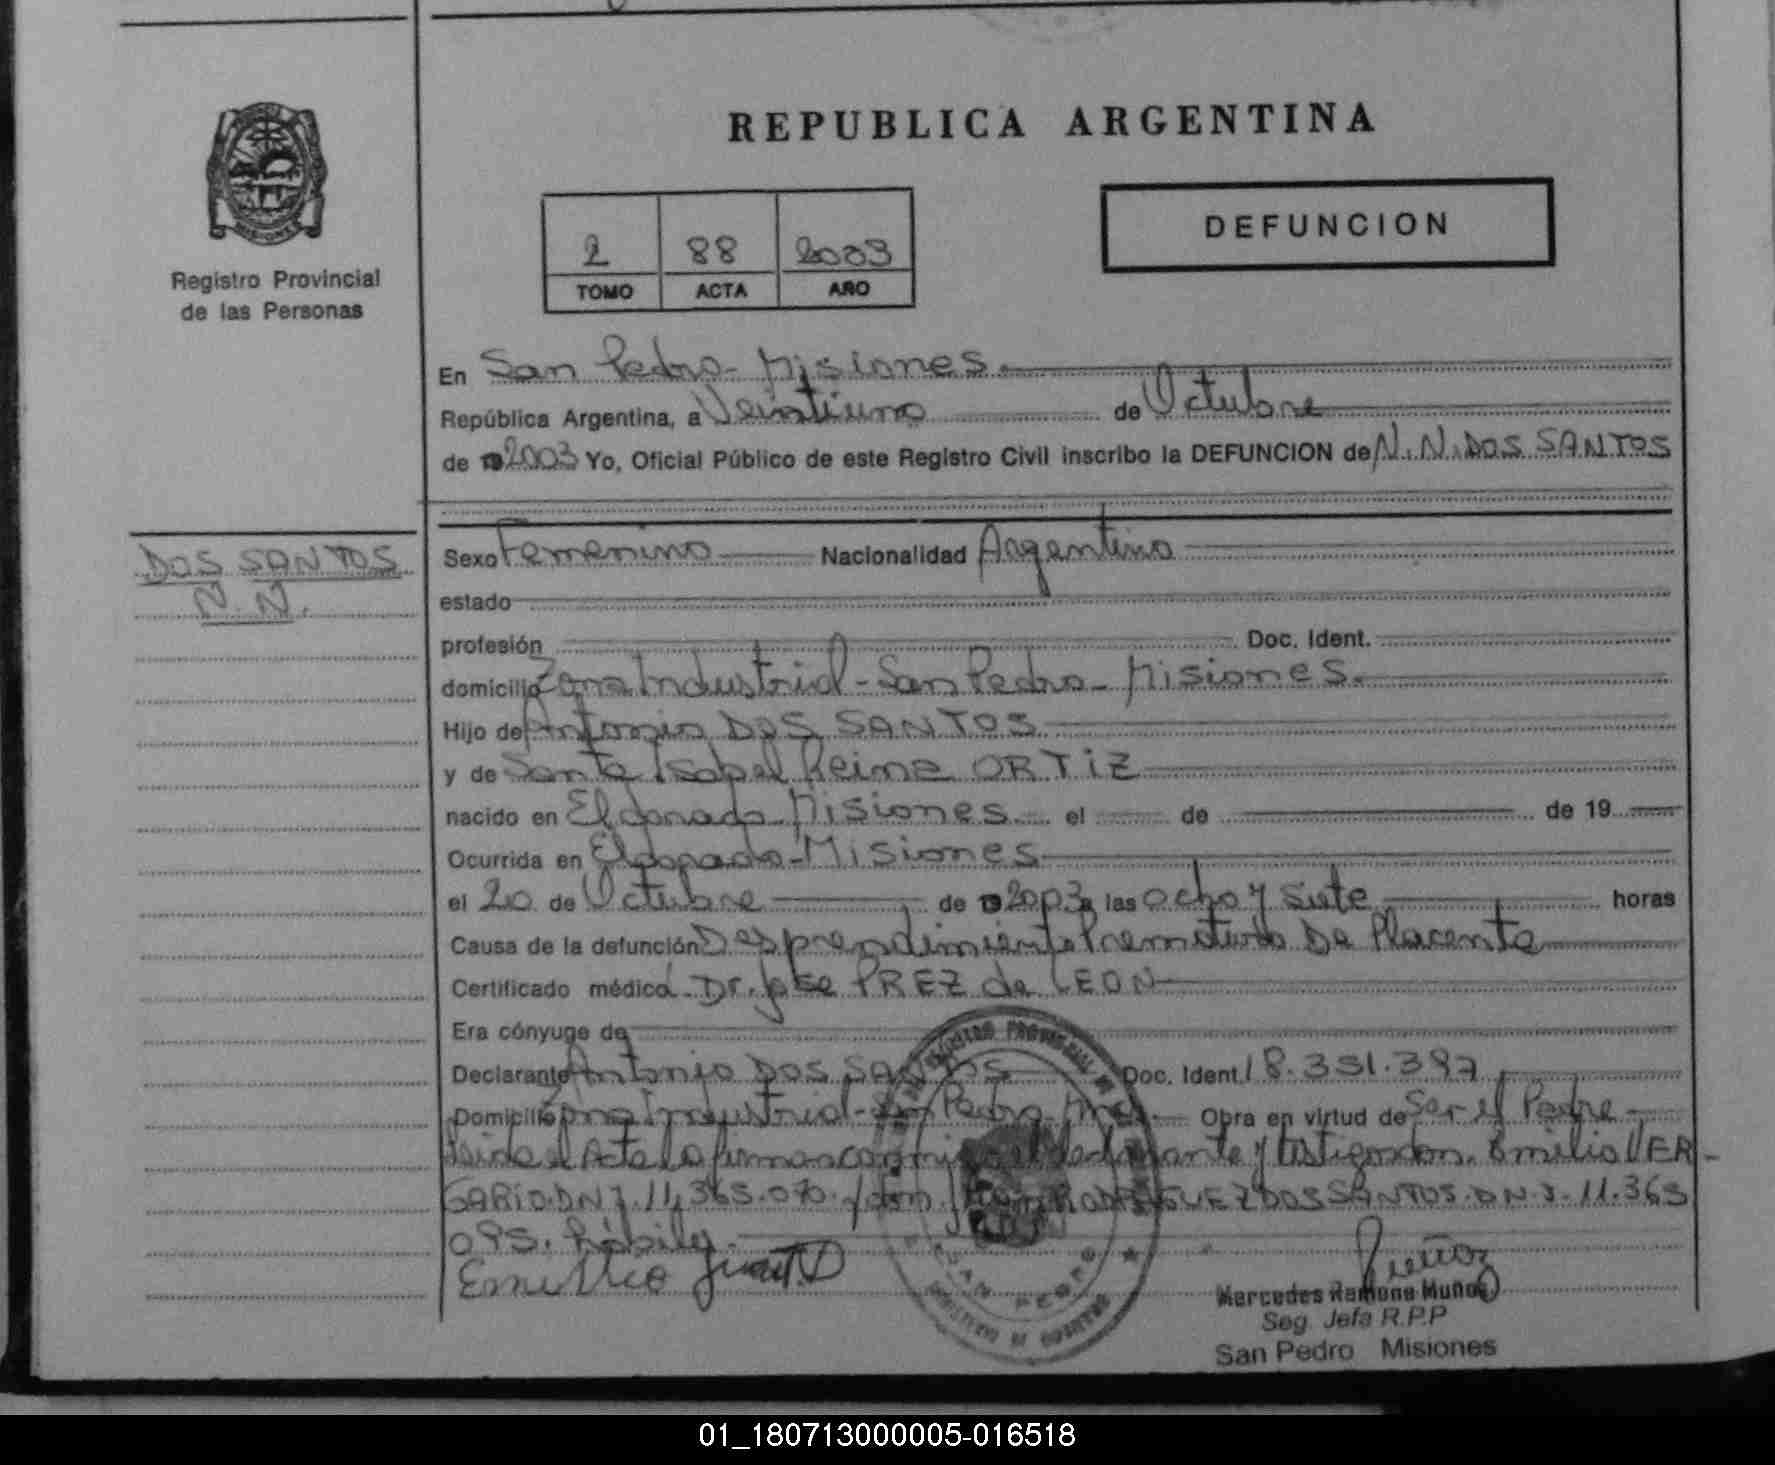 REPUBLICA ARGENTINA
MISIONES
Registro Provincial
de las Personas
2 88 2003
TOMO ACTA AÑO
DEFUNCION
En San Pedro - Misiones
República Argentina, a Veintiuno de Octubre
de 19 2003 Yo, Oficial Público de este Registro Civil inscribo la DEFUNCION de N.N. DOS SANTOS
DOS SANTOS
N. N.
Sexo Femenino Nacionalidad Argentino
estado
profesión Doc. Ident.
domicilio Zona Industrial - San Pedro - Misiones.
Hijo de Antonio DOS SANTOS
y de Santa Isabel Reina ORTIZ
nacido en Eldorado Misiones el de de 19
Ocurrida en Eldorado - Misiones
el 20 de Octubre de 19 2003 a las ocho y siete horas
Causa de la defunción Desprendimiento Prematuro De Placenta
Certificado médico Dr. Jose PREZ de LEON
Era cónyuge de
Declarante Antonio DOS SANTOS Doc. Ident. 18.331.397
Domicilio Zona Industrial - San Pedro - Mnes. Obra en virtud de Ser el Padre
Leida el Acta la firman conmigo el declarante y testigos don. Emilio VER-
GARIO. DNI. 11.365.070. y don RODRIGUEZ DOS SANTOS. DNI. 11.363
095. hábiles.
Emilio
REGISTRO PROVINCIAL DE LAS
SAN PEDRO
Muñoz
Mercedes Ramona Muñoz
Seg. Jefa R.P.P
San Pedro Misiones
01_180713000005-016518